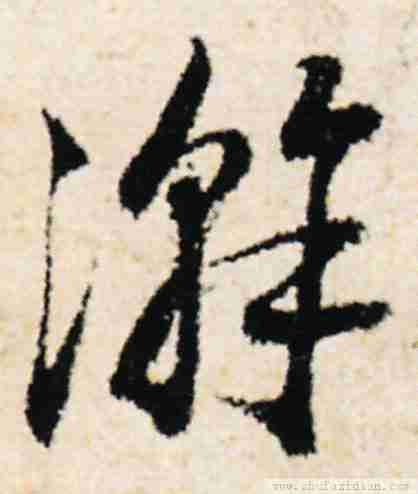 澥
www.shufazidian.com